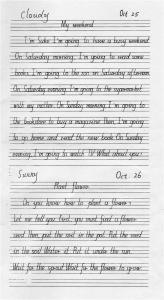 Cloudy Oct 25
My weekend
I'm Jake. I'm going to have a busy weekend.
On Saturday morning, I'm going to read some
books. I'm going to the zoo on Saturday afternoon.
On Saturday evening, I'm going to the supermarket
with my mother. On Sunday morning, I'm going to
the bookstore to buy a magazine. Then, I'm going
to go home and read the new book. On Sunday
evening, I'm going to watch TV. What about you?
Sunny Oct. 26
Plant flower
Do you know how to plant a flower?
Let me tell you. First, you must find a flower
and then, put the seed in the pot. Put the seed
in the soil. Water it. Put it under the sun.
Wait for the sprout. Wait for the flower to grow.